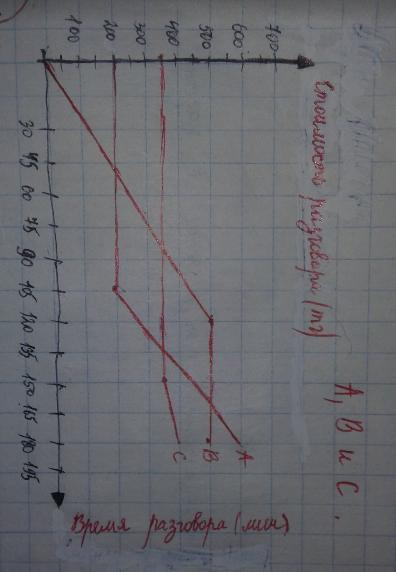 А, В и С.
Стоимость разговора (тг)
700
600
500
400
300
200
100
30 45 60 75 90 105 120 135 150 165 180 195
А
В
С
Время разговора (мин)